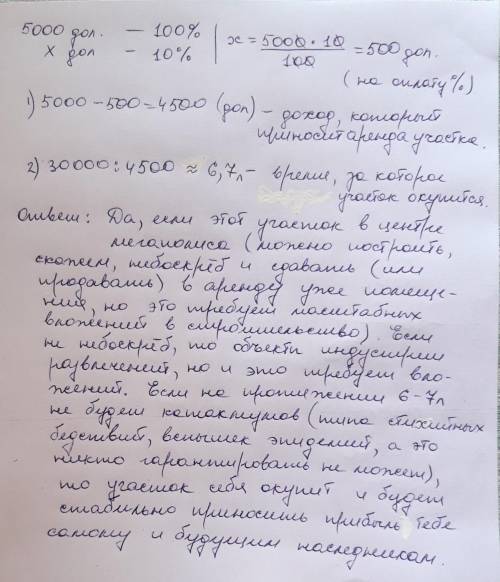 5000 дол. — 100% | x = 5000 · 10 / 100 = 500 дол.
х дол – 10%
(на оплату %)
1) 5000 – 500 = 4500 (дол) – доход, который
приносит аренда участка.
2) 30000 : 4500 ≈ 6,7л – время, за которое
участок окупится.
Ответ: Да, если этот участок в центре
мегаполиса (можно построить,
скажем, небоскрёб и сдавать (или
продавать) в аренду уже помеще-
ния, но это требует масштабных
вложений в строительство). Если
не небоскрёб, то объекты индустрии
развлечений, но и это требует вло-
жений. Если на протяжении 6–7л
не будет катаклизмов (типа стихийных
бедствий, вспышек эпидемий, а это
никто гарантировать не может),
то участок себя окупит и будет
стабильно приносить прибыль тебе
самому и будущим наследникам.